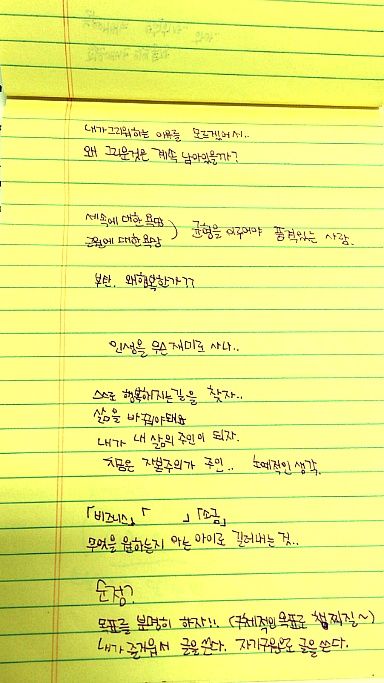 내가 그리워하는 이유를 모르겠어서..
왜 그리운것은 계속 남아있을까?
세속에 대한 욕망
구원에 대한 욕망 ) 균형을 이루어야 품격있는 사람.
부탄. 왜행복한가??
인생을 무슨 재미로 사나..
스스로 행복해지는길을 찾자..
삶을 바꿔야돼요
내가 내 삶의 주인이 되자.
지금은 자본주의가 주인.. 노예적인 생각.
「비즈니스」 「 」 「소금」
무엇을 원하는지 아는 아이로 길러내는 것..
순정?
목표를 분명히 하자!!. (구체적인 목표로 챕찌질~)
내가 즐거워서 글을 쓴다. 자기구원으로 글을 쓴다.